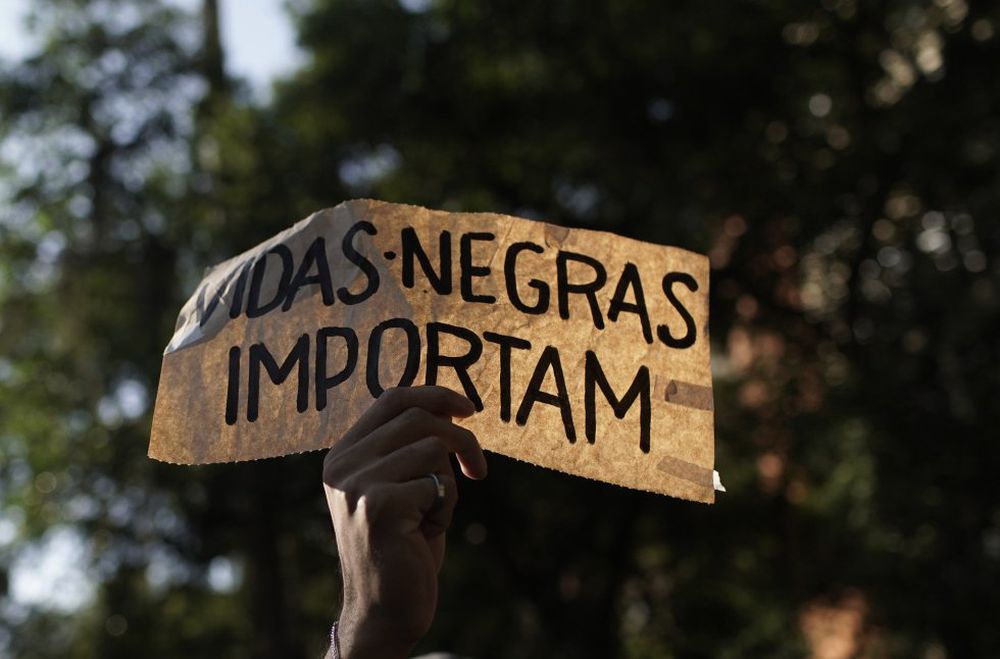 VIDAS·NEGRAS
IMPORTAM